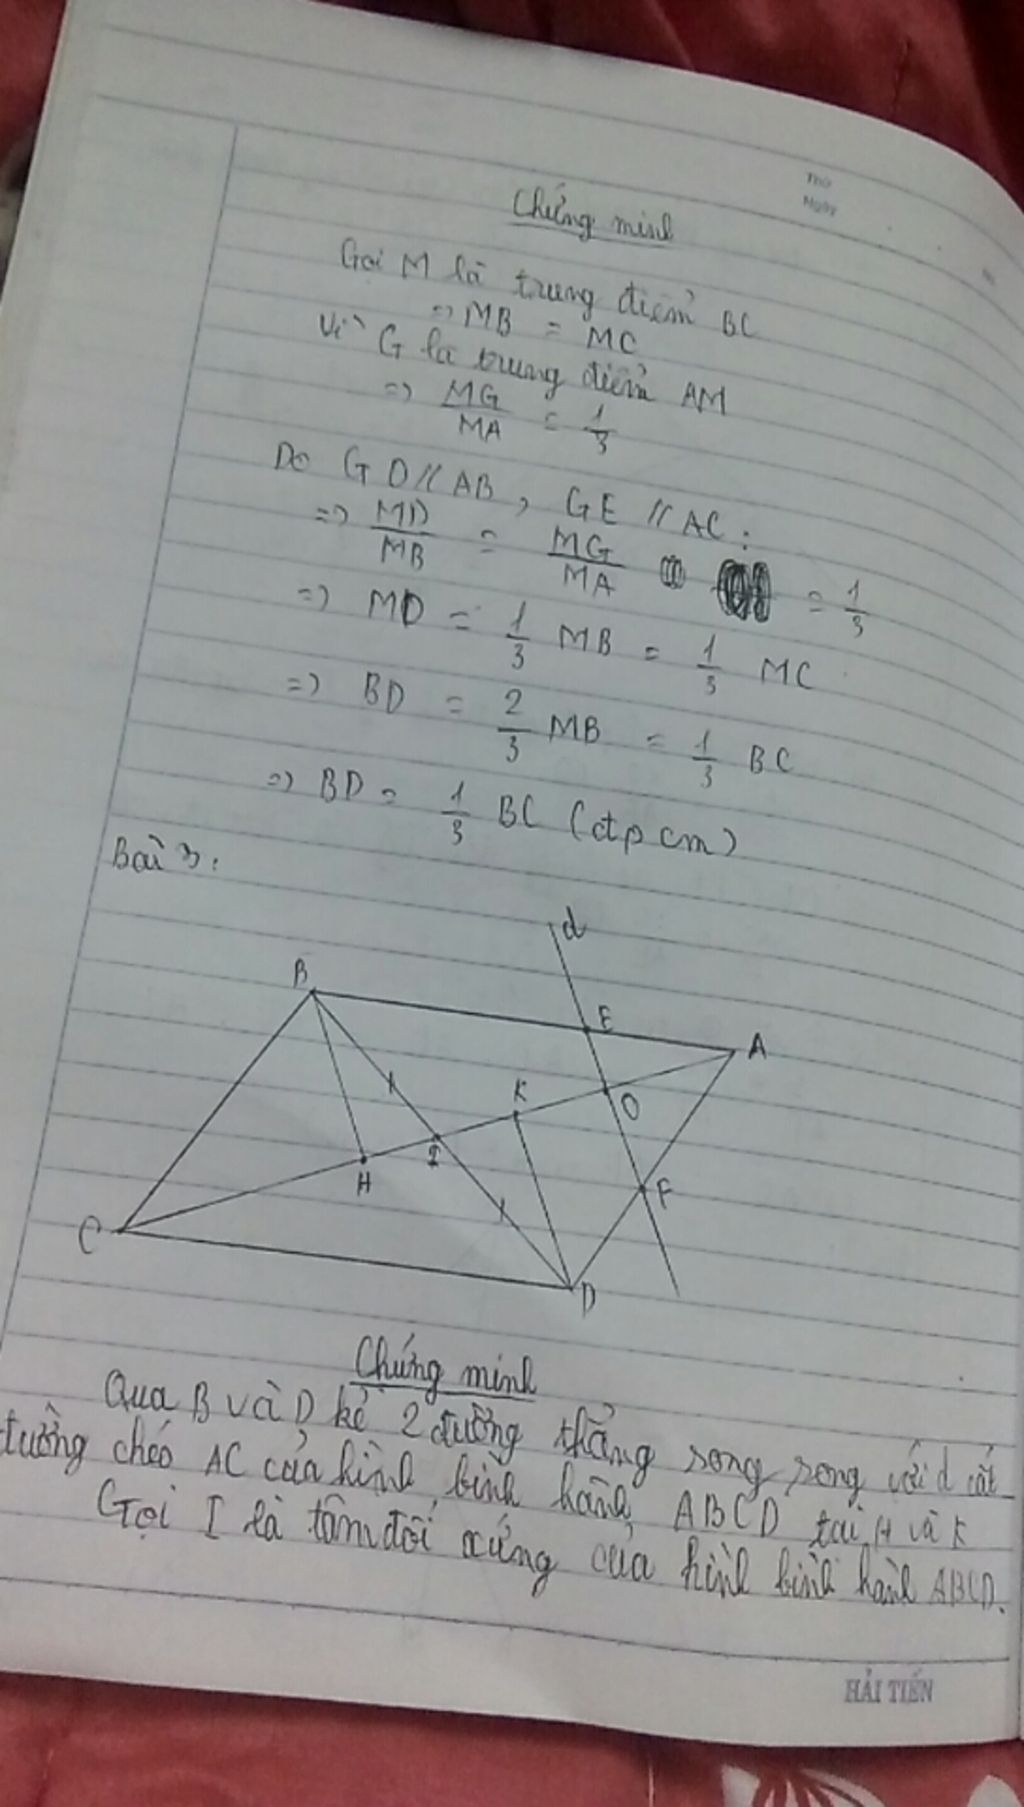 Thứ
Ngày
Chứng minh
Gọi M là trung điểm BC
=> MB = MC
Vì G là trung điểm AM
=> MG/MA = 1/3
Do GD // AB, GE // AC:
=> MD/MB = MG/MA = 1/3
=> MD = 1/3 MB = 1/3 MC
=> BD = 2/3 MB = 1/3 BC
=> BD = 1/3 BC (đpcm)
Bài 3:
d
B
E
A
K
O
I
H
F
C
D
Chứng minh
Qua B và D kẻ 2 đường thẳng song song với d cắt
đường chéo AC của hình bình hành ABCD tại H và K
Gọi I là tâm đối xứng của hình bình hành ABCD.
HẢI TIẾN